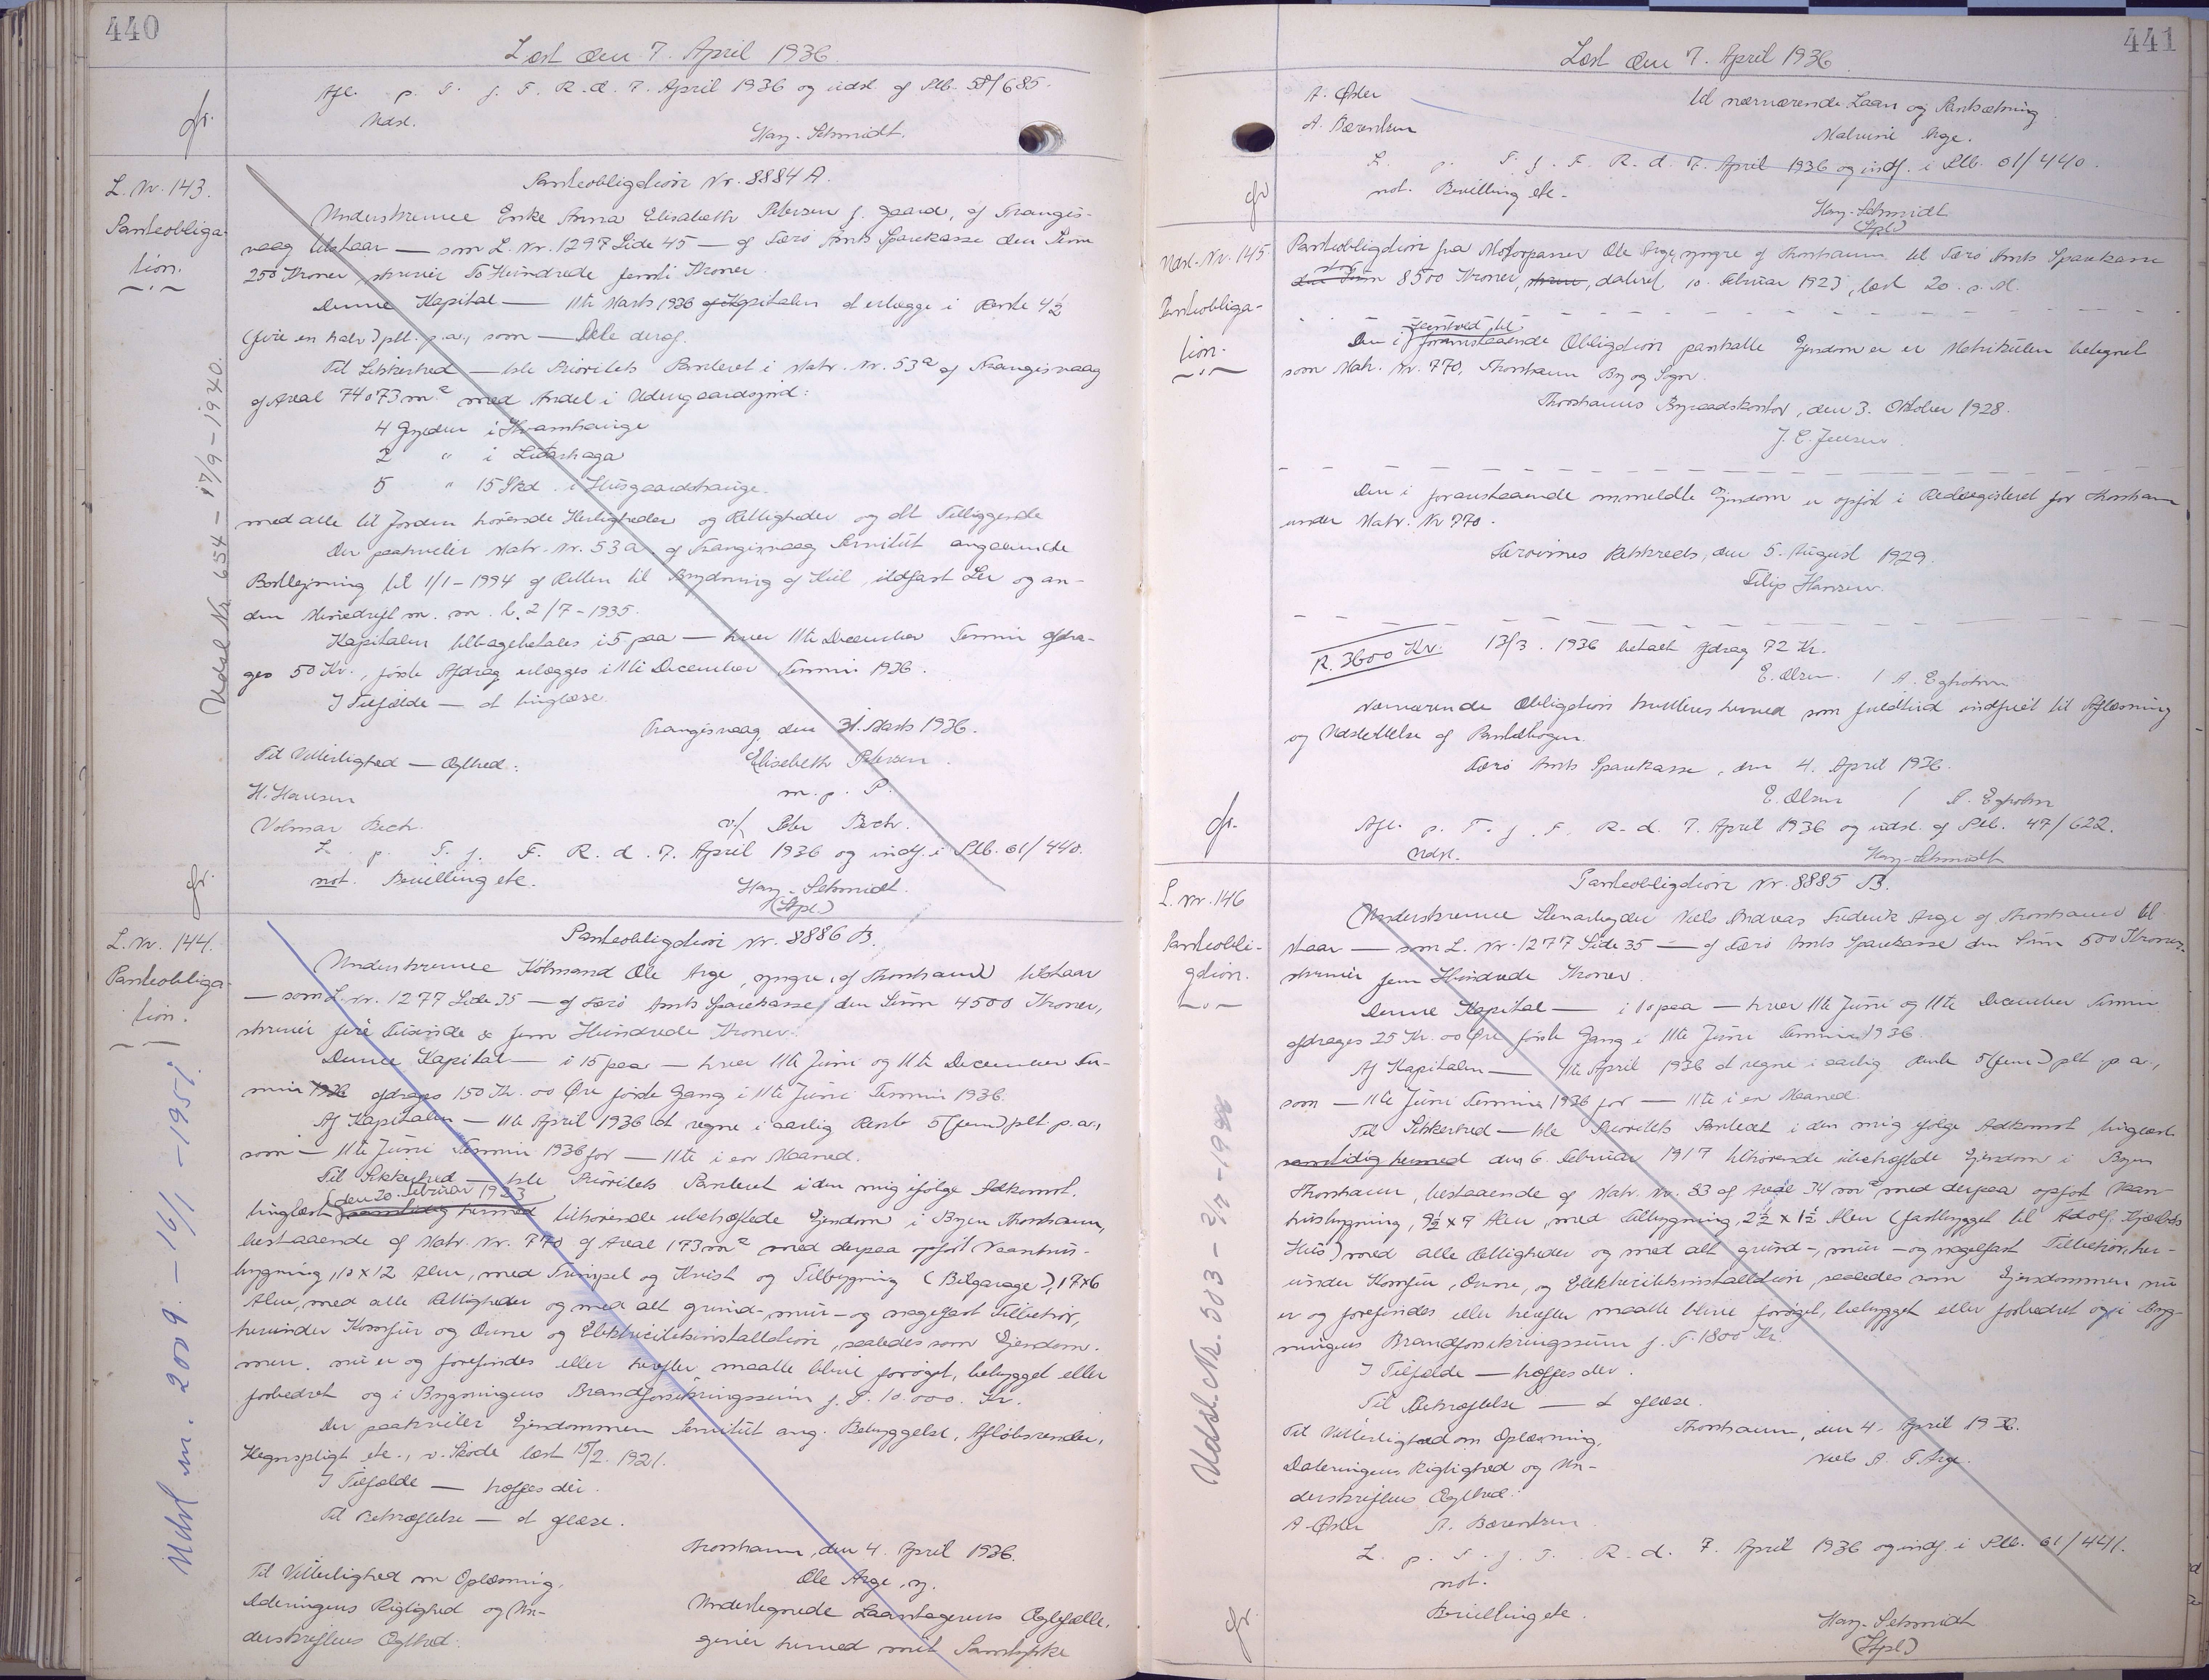 440
Læst den 7. April 1936
Afl. p. T. f. F. R. d. 7. April 1936 og udsl. af Ptb. 58/685.
Udsl.
Hay-Schmidt.
gr.
L. Nr. 143.
Panteobliga-
tion.
Udsl. Nr. 654 - 17/9 - 1940.
Panteobligation Nr. 8884 A.
Underskrevne Enke Anna Elisabeth Petersen f. Gaard, af Trangis-
vaag tilstaar — som L. Nr. 1297 Side 45 — af Færø Amts Sparekasse den Sum
250 Kroner, skriver To Hundrede femti Kroner.
Denne Kapital — 11te Marts 1936 af Kapitalen at erlægge i Rente 4½
(fire en halv) pCt. p.a., som — Dele deraf.
Til Sikkerhed — 1ste Prioritets Panteret i Matr. Nr. 53a af Trangisvaag
af Areal 74073 m² med Andel i Udengaardsjord:
4 Gylden i Kvamhauge
2 " i Litlashaga
5 " 15 Skd i Husgaardshauge.
med alle til Jorden hørende Herligheder og Rettigheder og alt Tilliggende
Der paahviler Matr. Nr. 53a. af Trangisvaag Servitut angaaende
Bortlejning til 1/1-1994 af Retten til Brydning af Kul, ildfast Ler og an-
den Minedrift m. m. l. 2/7-1935.
Kapitalen tilbagebetales i 5 paa — hver 11te December Termin afdra-
ges 50 Kr., første Afdrag erlægges i 11te December Termin 1936.
I Tilfælde — at tinglæse.
Trangisvaag, den 31. Marts 1936.
Til Vitterlighed — Ægthed:
Elisabeth Petersen
H. Hansen
m. p. P.
Volmar Bech.
v/ Peter Bech.
L. p. T. f. F. R. d. 7. April 1936 og indf. i Ptb. 61/440.
not. Bevilling etc.
Hay-Schmidt.
(Stpl.)
gr.
L. Nr. 144.
Panteobliga-
tion.
Udsl. nr. 2009 - 16/1 - 1951.
Panteobligation Nr. 8886 B.
Underskrevne Købmand Ole Arge, yngre, af Thorshavn tilstaar
— som L. Nr. 1277 Side 35 — af Færø Amts Sparekasse den Sum 4500 Kroner,
skriver fire Tusinde & fem Hundrede Kroner.
Denne Kapital — i 15 paa — hver 11te Juni og 11te December Ter-
min 1936 afdrages 150 Kr. 00 Øre første Gang i 11te Juni Termin 1936.
Af Kapitalen — 11te April 1936 at regne i aarlig Rente 5 (fem) pCt. p.a.,
som — 11te Juni Termin 1936 for — 11te i en Maaned.
Til Sikkerhed — 1ste Prioritets Panteret i den mig ifølge Adkomst,
den 20. Februar 1923
tinglæst samtidig hermed tilhørende ubehæftede Ejendom i Byen Thorshavn,
bestaaende af Matr. Nr. 770 af Areal 173 m² med derpaa opført Vaanhus-
bygning, 10 x 12 Alen, med Trimpel og Kvist og Tilbygning (Bilgarage), 17x6
Alen, med alle Rettigheder og med alt grund-, mur- og nagelfast Tilbehør,
herunder Komfur og Ovne og Elektricitetsinstallation, saaledes som Ejendom-
men. nu er og forefindes eller herefter maatte blive forøget, bebygget eller
forbedret og i Bygningens Brandforsikringssum f. T. 10.000. Kr.
Der paahviler Ejendommen Servitut ang. Bebyggelse, Afløbsrender,
Hegnspligt etc., v. Skøde læst 15/2. 1921.
I Tilfælde — træffes der.
Til Bekræftelse — at aflæse.
Thorshavn, den 4. April 1936.
Til Vitterlighed om Oplæsning,
Ole Arge, y.
Dateringens Rigtighed og Un-
Undertegnede Laantagerens Ægtefælle,
derskriftens Ægthed:
giver herved mit Samtykke
441
Læst den 7. April 1936
A. Øster
til nærværende Laan og Pantsætning
A. Bærentsen
Malvine Arge.
L. p. T. f. F. R. d. 7. April 1936 og indf. i Ptb. 61/440.
not. Bevilling etc.
Hay-Schmidt
(Stpl.)
gr
Udsl. Nr. 145
Panteobliga-
tion.
Panteobligation fra Motorpasser Ole Arge, yngre af Thorshavn til Færø Amts Sparekasse
stor
den Sum 8500 Kroner, skriver, dateret 10. Februar 1923, læst 20. s. M.
Den i foranstaaende Obligation pantsatte Ejendom er i Matrikulen betegnet
som Matr. Nr. 770, Thorshavn By og Sogn.
Thorshavns Byraadskontor, den 3. Oktober 1928.
J. C. Jensen.
Den i foranstaaende ommeldte Ejendom er opført i Realregisteret for Thorshavn
under Matr. Nr 770.
Færøernes Retskreds, den 5. August 1929.
Filip Hansen.
R. 3600 Kr. 13/3. 1936 betalt Afdrag 72 Kr.
E. Olsen. / A. Egholm
Nærværende Obligation kvitteres herved som fuldtud indfriet til Aflæsning
og Udslettelse af Pantebogen.
Færø Amts Sparekasse, den 4. April 1936.
E. Olsen / P. Egholm
Afl. p. T. f. F. R. d. 7. April 1936 og udsl. af Ptb. 47/622.
Udsl.
Hay-Schmidt
gr.
L. nr. 146
Panteobli-
gation.
Udsl. Nr. 503 - 2/7 -
Panteobligation Nr. 8885 B.
Underskrevne Stenarbejder Niels Andreas Frederik Arge af Thorshavn til-
staar — som L. Nr. 1277 Side 35 — af Færø Amts Sparekasse den Sum 500 Kroner,
skriver fem Hundrede Kroner.
Denne Kapital — i 10 paa — hver 11te Juni og 11te December Termin
afdrages 25 Kr. 00 Øre første Gang i 11te Juni Termin 1936.
Af Kapitalen — 11te April 1936 at regne i aarlig Rente 5 (fem) pCt. p a.,
som — 11te Juni Termin 1936 for — 11te i en Maaned.
Til Sikkerhed — 1ste Prioritets Panteret i den mig ifølge Adkomst tinglæst
samtidig hermed den 6. Februar 1917 tilhørende ubehæftede Ejendom i Byen
Thorshavn, bestaaende af Matr. Nr. 83 af Areal 74 m² med derpaa opført Vaan-
husbygning, 9½ x 9 Alen, med Tilbygning, 2½ x 1½ Alen (fastbygget til Adolf
Hus) med alle Rettigheder og med alt grund-, mur- og nagelfast Tilbehør, her-
under Komfur, Ovne, og Elektricitetsinstallation, saaledes som Ejendommen nu
er og forefindes eller herefter maatte blive forøget, bebygget eller forbedret og i Byg-
ningens Brandforsikringssum f. T. 1800 Kr.
I Tilfælde — træffes der.
Til Bekræftelse — at aflæse.
Til Vitterlighed om Oplæsning,
Thorshavn, den 4. April 1936.
Dateringens Rigtighed og Un-
Niels A. F. Arge.
derskriftens Ægthed:
A. Øster A. Bærentsen
L. p. T. f. F. R. d. 7. April 1936 og indf. i Ptb. 61/441.
not.
Bevilling etc.
Hay-Schmidt
(Stpl)
gr.